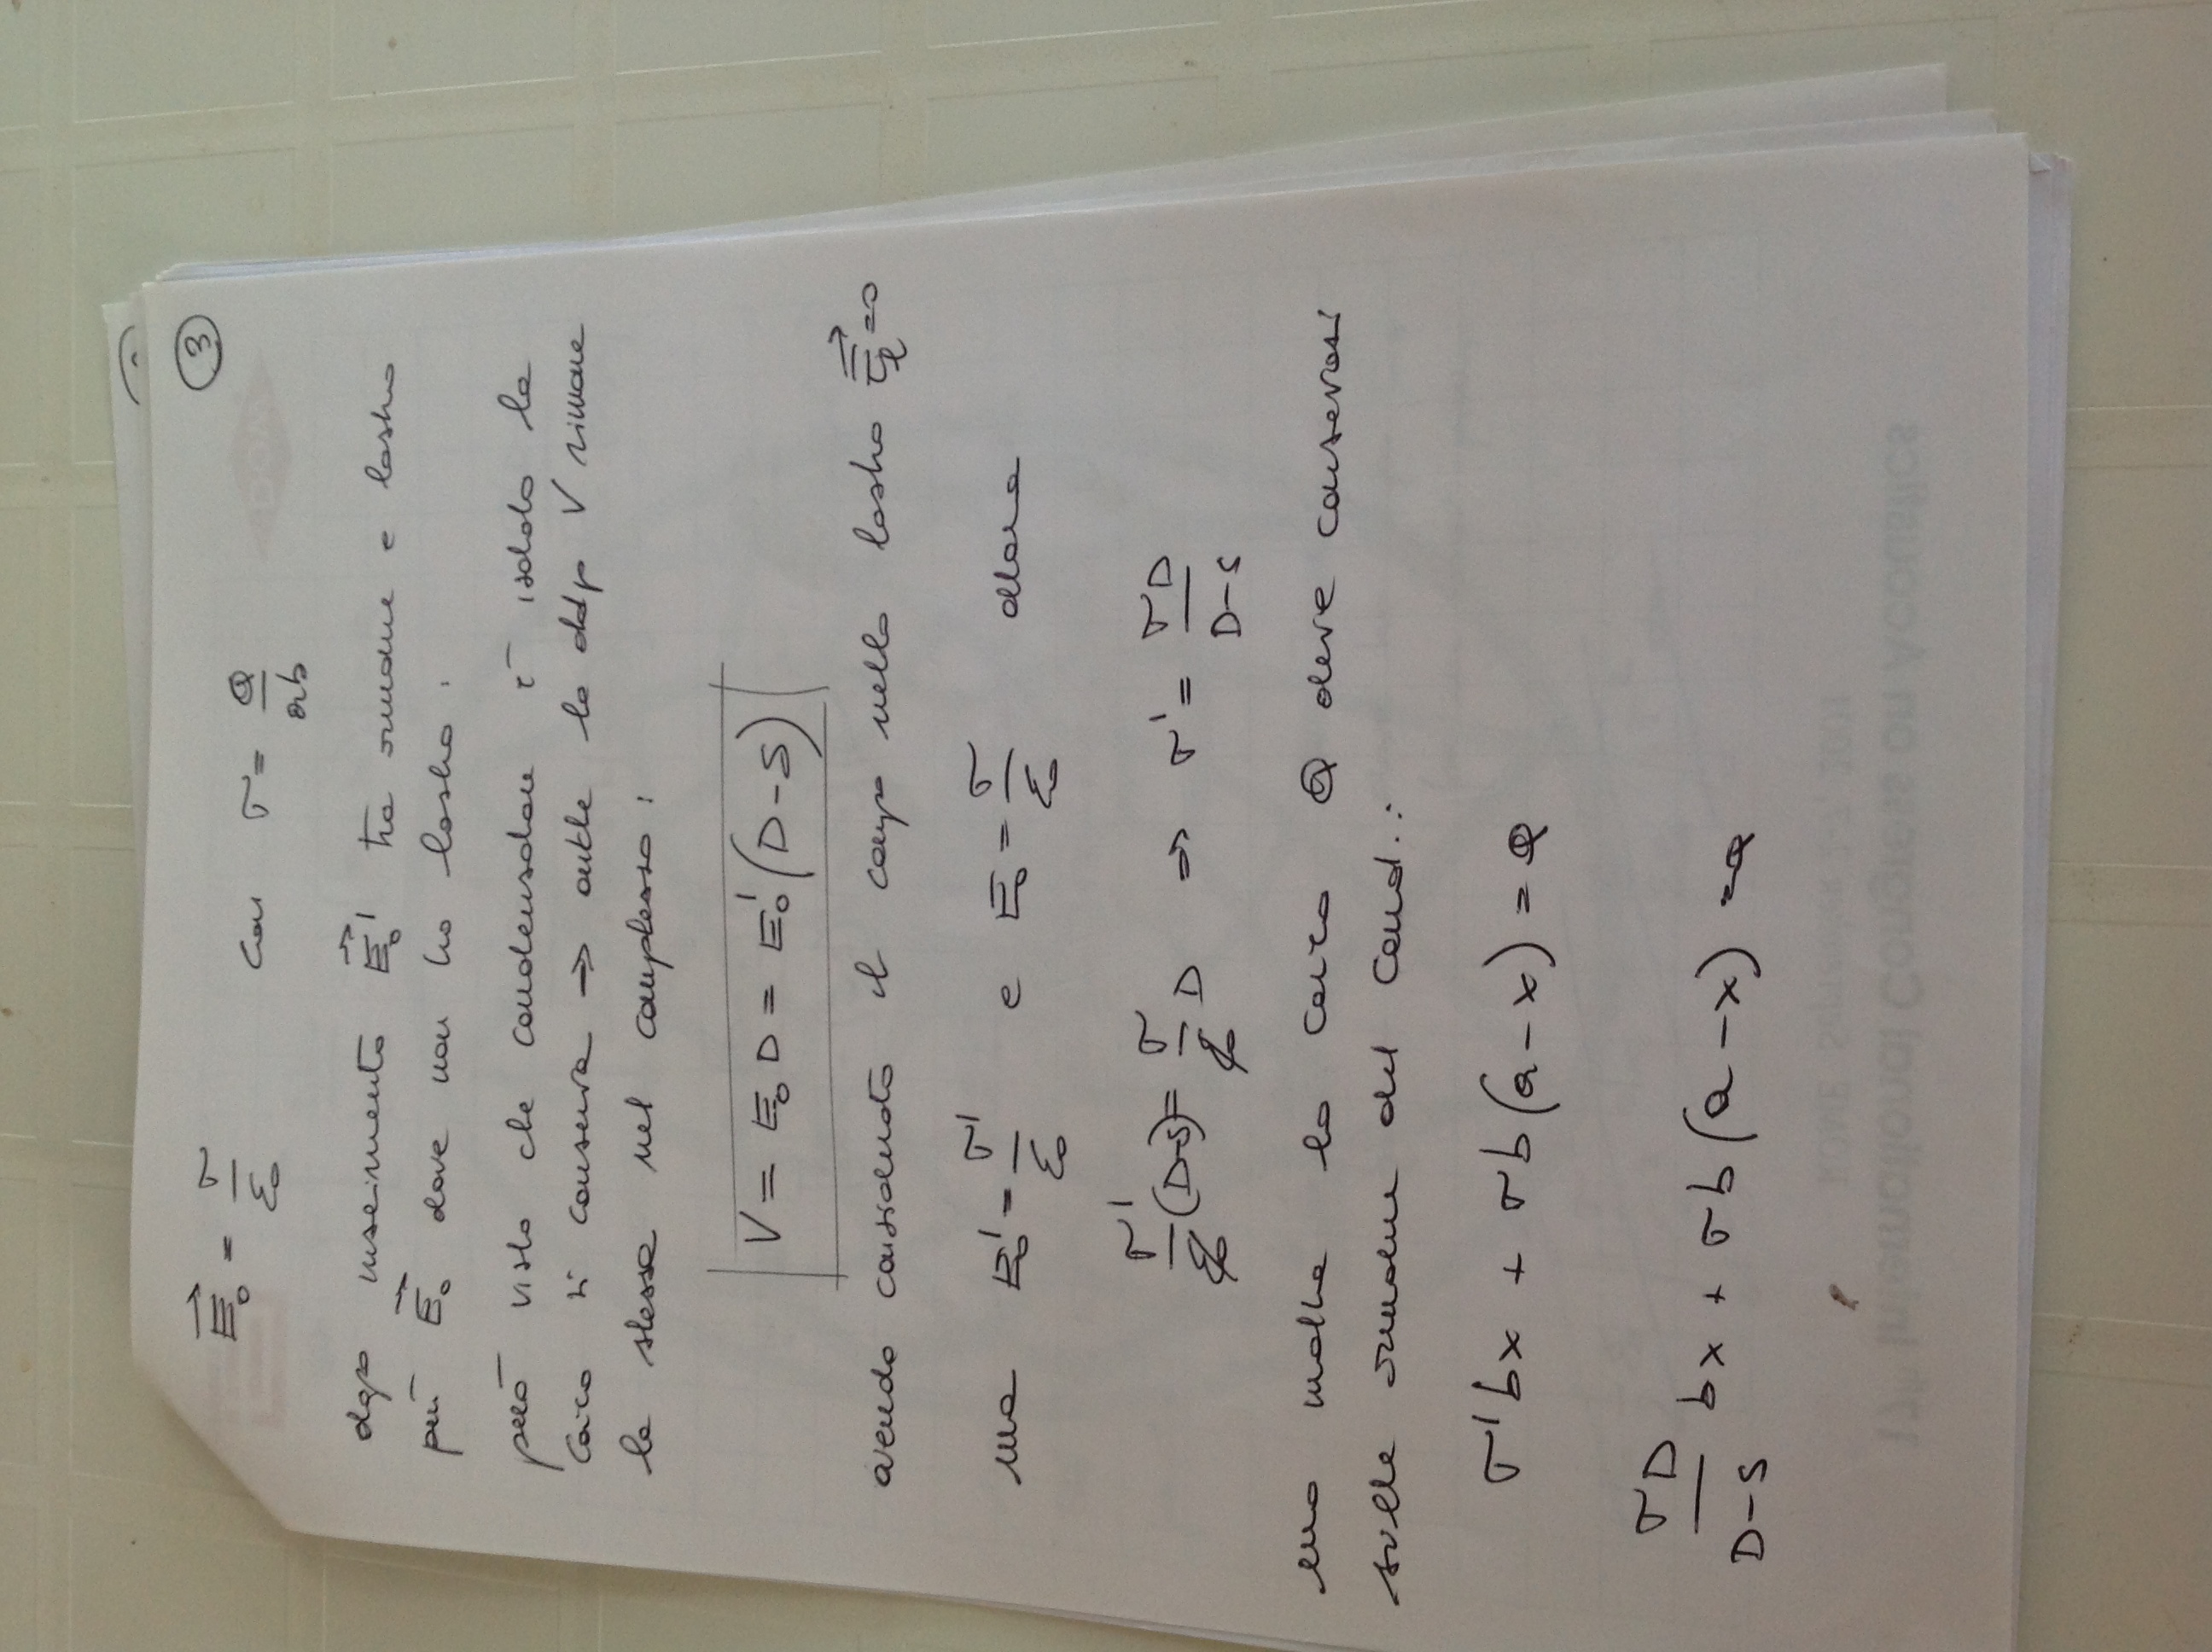 3
E₀ = σ/ε₀ con σ = Q/ab
dopo inserimento E₀' tra armature e lastra
più E₀ dove non ho lastra :
però visto che condensatore è isolato la
carica si conserva → anche la ddp V rimane
la stessa nel complesso :
V = E₀D = E₀'(D-S)
avendo considerato il campo nella lastra Eₗ=0
ma E₀' = σ'/ε₀ e E₀ = σ/ε₀ allora
σ'/ε₀ (D-S) = σ/ε₀ D ⇒ σ' = σD/D-S
ma inoltre la carica Q deve conservarsi
sulle armature del cond. :
σ'bx + σb(a-x) = Q
σD/D-S bx + σb(a-x) = Q
ROME September 2-7, 2001
17th International Congress on Acoustics